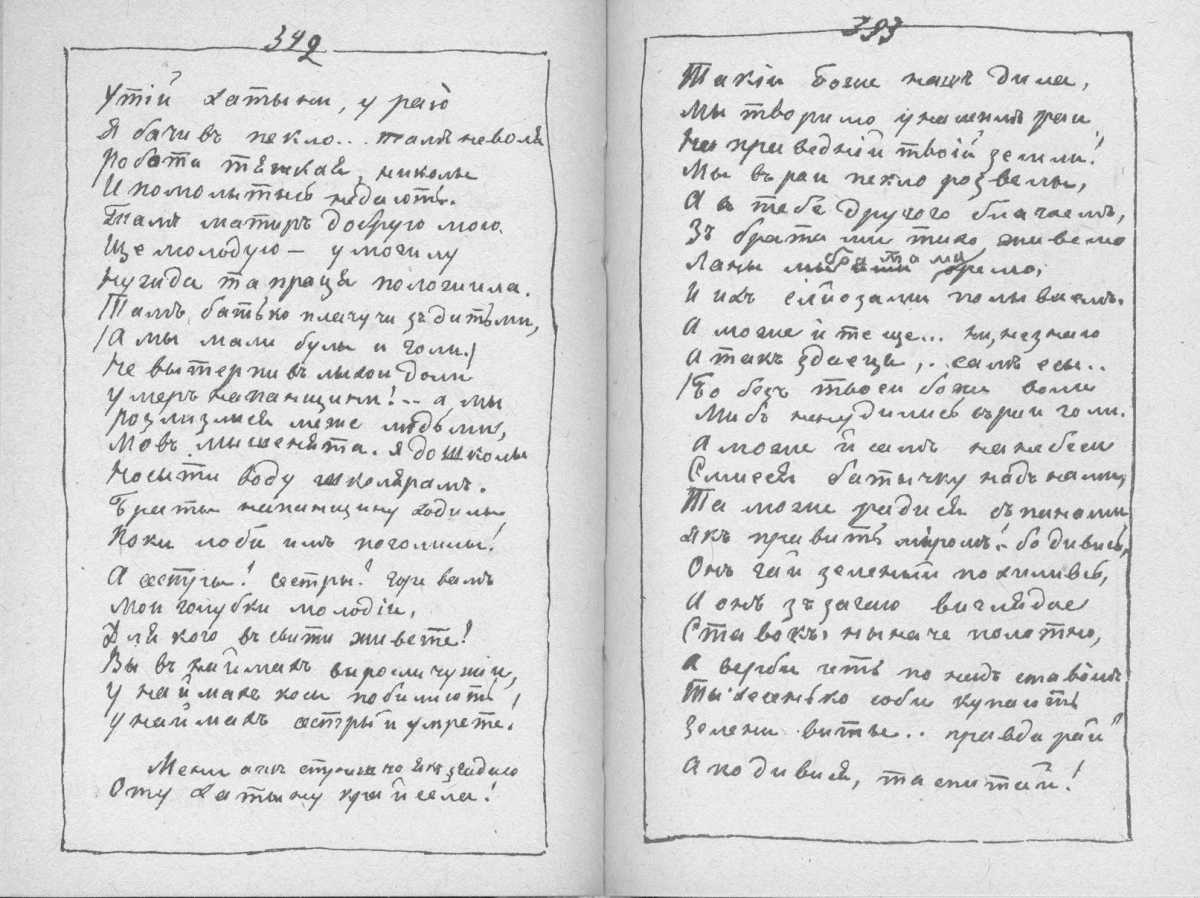 342
У тій хатыни, у раю
Я бачивъ пекло... тамъ неволя
Робота тяжкая, николы
И помолытысь недають.
Тамъ матиръ добрую мою.
Ще молодую — у могилу
Нужда та праця положила.
Тамъ батько плачучи зъ дитьми,
/А мы мали булы и голи/
Не вытерпивъ лыхои доли
Умеръ на панщини!.. а мы
Розлизлися межи людьми,
Мовъ мышенята. Я до школы
Носыти воду школярамъ.
Браты на панщину ходилы,
Поки лоби имъ поголилы!
А сестры! сестры! горе вамъ
Мои голубки молодіи,
Для кого въ свити живете?
Вы въ наймахъ выросли чужіи,
У наймахъ косы побиліють,
У наймахъ сестры й умрете!
Мени ажъ страшно якъ згадаю
Оту хатыну край села!
393
Такіи боже нашъ дила,
Мы творимо у нашимъ раи
На праведній твоій земли!
Мы въ раи пекло розвелы,
А въ тебе другого благаемъ,
Зъ братами тихо живемо
Ланы мы братами оремо,
И ихъ слёзами полываемъ.
А може й те ще... ни, незнаю
А такъ здаеця,.. самъ есы..
/Бо безъ твоеи божи воли
Мибъ ненудились въ раи голи.
А може й самъ на небеси
Смиесся батычку надъ нами,
Та може радися съ панами
Якъ править миромъ! бо дивись,
Онъ гай зеленый похиливсь,
А онъ зъ загаю виглядае
Ставокъ, ныначе полотно,
А верби геть по надъ ставомъ
Тыхесенько соби купають
Зелени виты.. правда рай?
А подивися, та спитай!